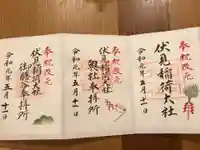 奉拝改元
伏見稲荷大社
令和元年五月十一日
奉拝改元
伏見稲荷大社
奥社奉拝所
令和元年五月十一日
奉拝改元
伏見稲荷大社
御膳谷奉拝所
令和元年五月十一日